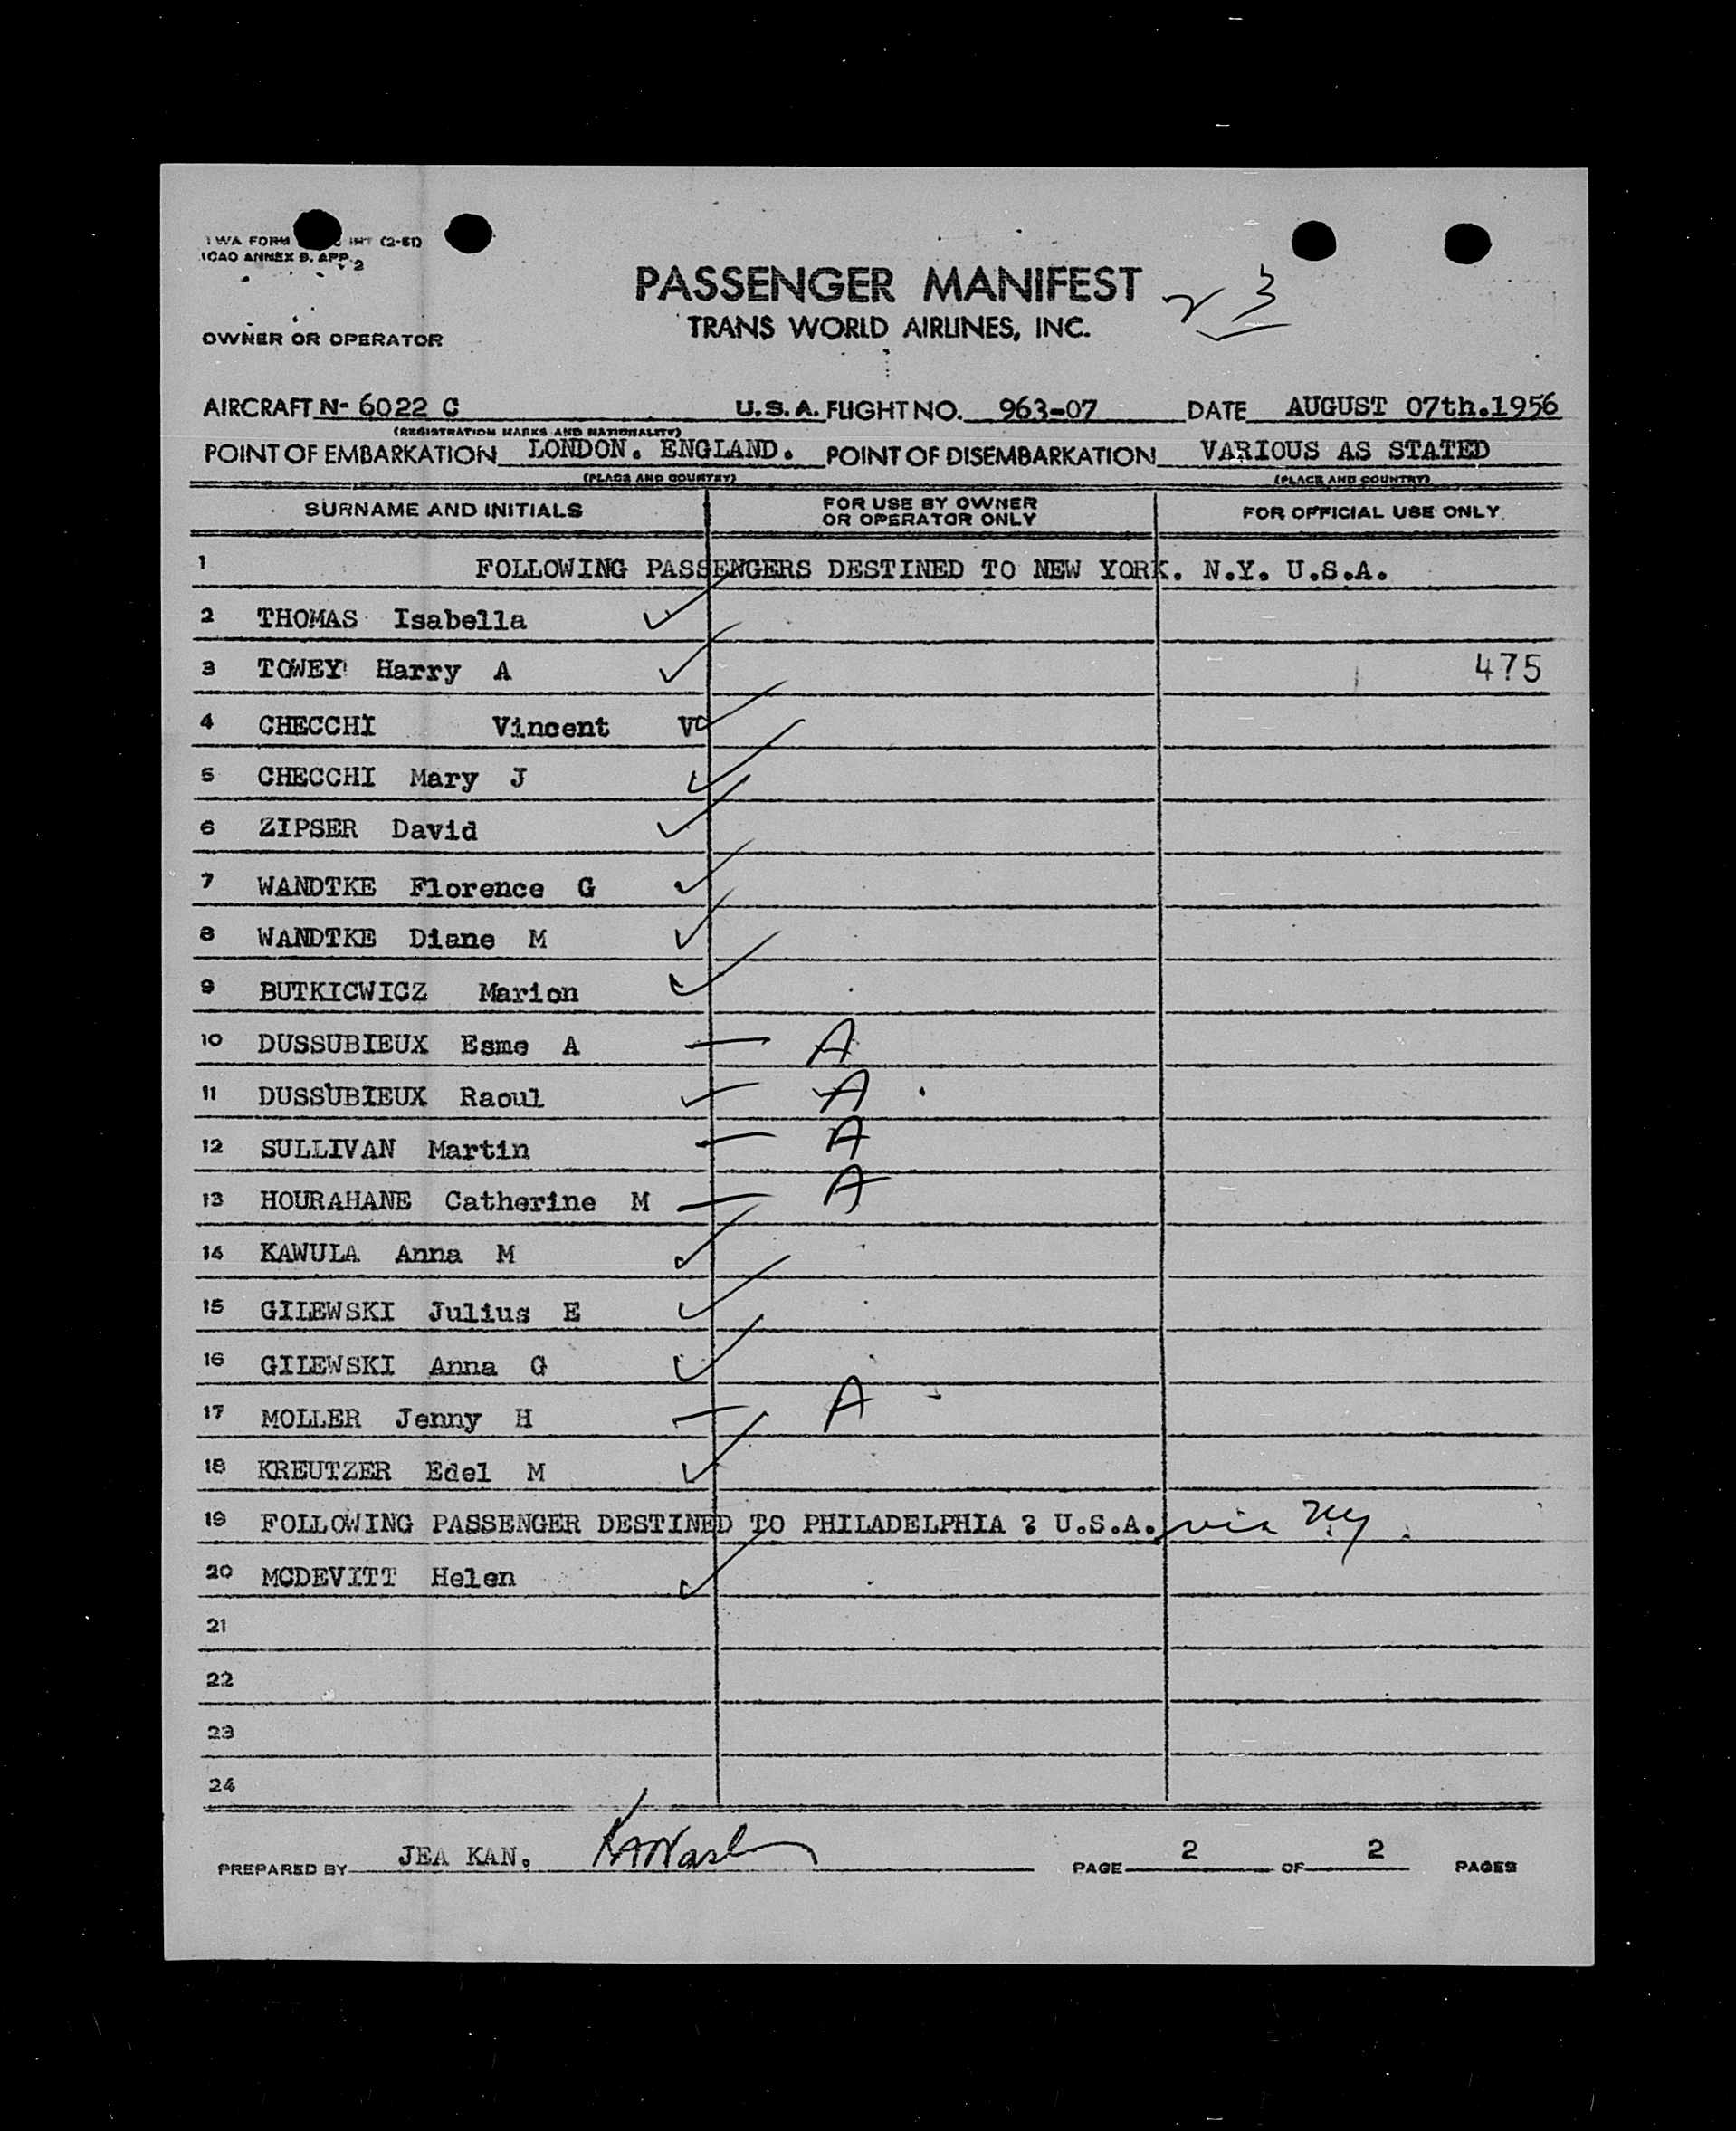 TWA FORM INT (2-51)
ICAO ANNEX 9. APP. 2
PASSENGER MANIFEST
3
TRANS WORLD AIRLINES, INC.
OWNER OR OPERATOR
AIRCRAFT N- 6022 C U.S.A. FLIGHT NO. 963-07 DATE AUGUST 07th.1956
(REGISTRATION MARKS AND NATIONALITY)
POINT OF EMBARKATION LONDON. ENGLAND. POINT OF DISEMBARKATION VARIOUS AS STATED
(PLACE AND COUNTRY) (PLACE AND COUNTRY)
SURNAME AND INITIALS FOR USE BY OWNER OR OPERATOR ONLY FOR OFFICIAL USE ONLY
1 FOLLOWING PASSENGERS DESTINED TO NEW YORK. N.Y. U.S.A.
2 THOMAS Isabella
3 TOWEY Harry A 475
4 CHECCHI Vincent V
5 CHECCHI Mary J
6 ZIPSER David
7 WANDTKE Florence G
8 WANDTKE Diane M
9 BUTKICWICZ Marion
10 DUSSUBIEUX Esme A — A
11 DUSSUBIEUX Raoul A
12 SULLIVAN Martin — A
13 HOURAHANE Catherine M — A
14 KAWULA Anna M
15 GILEWSKI Julius E
16 GILEWSKI Anna G
17 MOLLER Jenny H — A
18 KREUTZER Edel M
19 FOLLOWING PASSENGER DESTINED TO PHILADELPHIA ? U.S.A. via NY.
20 MCDEVITT Helen
21
22
23
24
PREPARED BY JEA KAN. PAGE 2 OF 2 PAGES